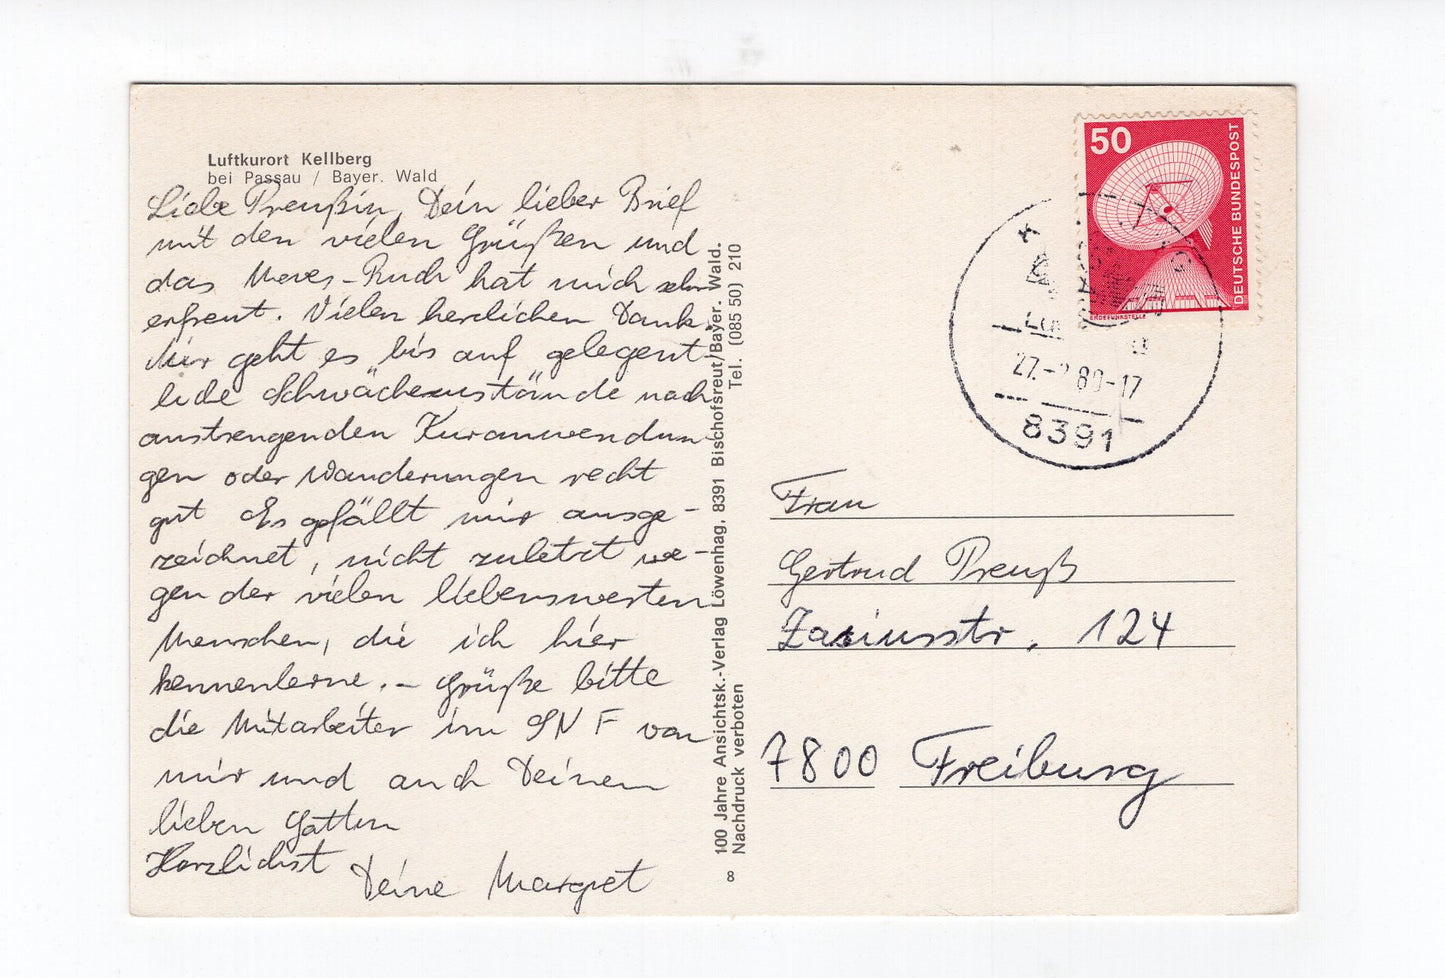 Luftkurort Kellberg
bei Passau / Bayer. Wald
Liebe Preußin, Dein lieber Brief
mit den vielen Grüßen und
das Meves-Buch hat mich sehr
erfreut. Vielen herzlichen Dank.
Mir geht es bis auf gelegent-
liche Schwächezustände nach
anstrengenden Kuranwendun-
gen oder Wanderungen recht
gut. Es gefällt mir ausge-
zeichnet, nicht zuletzt we-
gen der vielen liebenswerten
Menschen, die ich hier
kennenlerne. – Grüße bitte
die Mitarbeiter im SNF von
mir und auch Deinen
lieben Gatten
Herzlichst Deine Margret
100 Jahre Ansichtsk.-Verlag Löwenhag, 8391 Bischofsreut/Bayer. Wald.
Nachdruck verboten Tel. (085 50) 210
8
50
DEUTSCHE BUNDESPOST
ERDEFUNKSTELLE
80-17
8391
Frau
Gertrud Preuß
Zasiusstr. 124
7800 Freiburg